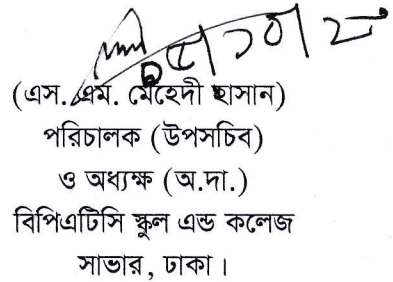 (এস. এম. মেহেদী হাসান)
পরিচালক (উপসচিব)
ও অধ্যক্ষ (অ.দা.)
বিপিএটিসি স্কুল এন্ড কলেজ
সাভার, ঢাকা।